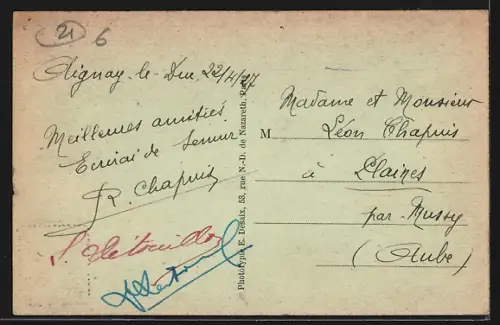 21
6
Aignay-le-Duc 22/4/27
Meilleures amitiés
Ecrirai de Semur
R. Chapuis
Phototypie E. Desaix, 53, rue N.-D. de Nazareth,
Madame et Monsieur
M Léon Chapuis
à Plaines
par Mussy
(Aube)